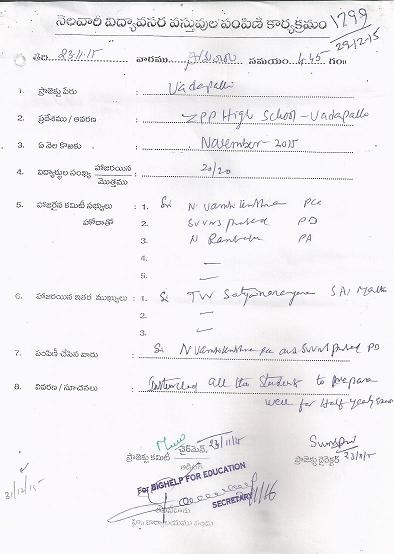 నెలవారీ విద్యావసర వస్తువుల పంపిణీ కార్యక్రమం 1299
29-12-15
తేది 23.11.15 వారము సమయం 4.45 గం॥
1. ప్రాజెక్టు పేరు Vadapalli
2. ప్రదేశము / ఆవరణ ZPP High School - Vadapalli
3. ఏ నెల కొరకు November - 2015
4. విద్యార్థుల సంఖ్య హాజరయిన / మొత్తము 20/20
5. హాజరైన కమిటీ సభ్యులు హోదాతో
1. Sri N PCC
2. SVVNS Prasad PD
3. N Rambabu PA
4. —
5. —
6. హాజరయిన ఇతర ముఖ్యులు :
1. Sri TVV Satyanarayana SAI
2. —
3. —
7. పంపిణీ చేసిన వారు Sri N PCC and SVVNS Prasad PD
8. వివరణ / సూచనలు Instructed all the Student to prepare
well for Half yearly
ప్రాజెక్టు కమిటీ ఛైర్మన్ 23/11/15
ప్రాజెక్టు డైరెక్టర్ 23/11/15
For BIGHELP FOR EDUCATION
SECRETARY
31/12/15